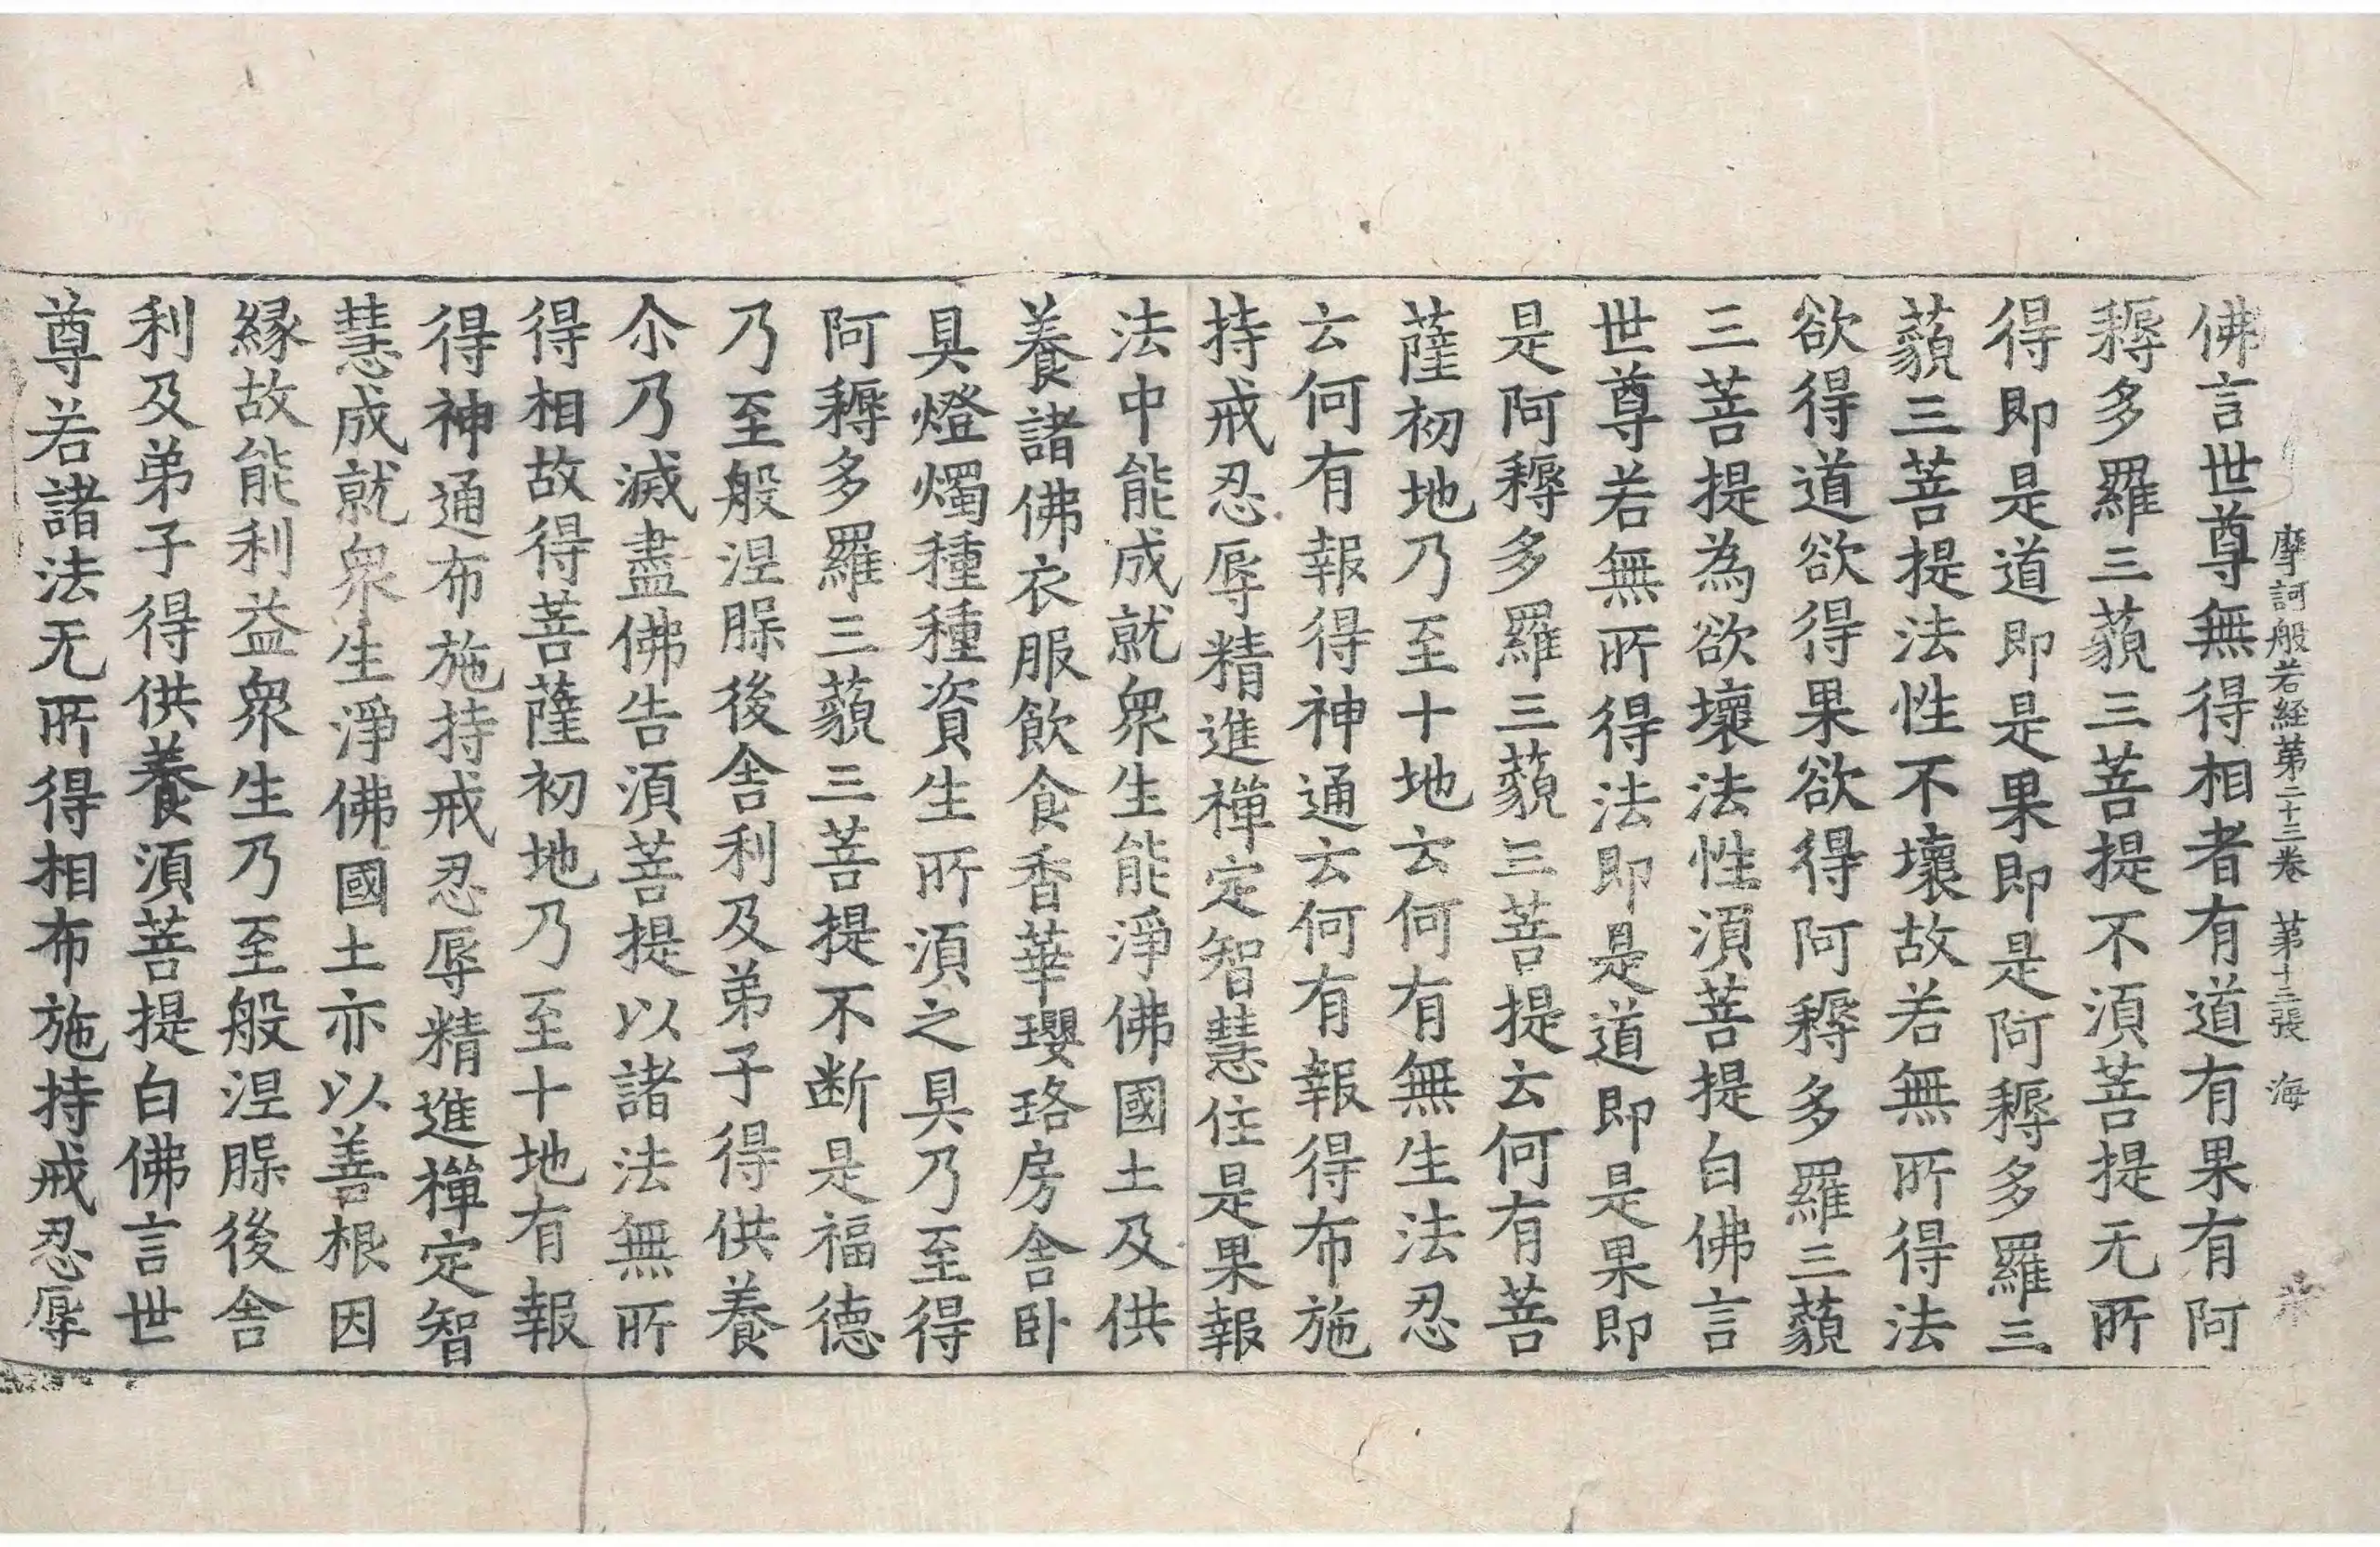 摩訶般若経第二十三卷 第十三張 海
佛言世尊無得相者有道有果有阿
耨多羅三藐三菩提不湏菩提无所
得即是道即是果即是阿耨多羅三
藐三菩提法性不壞故若無所得法
欲得道欲得果欲得阿耨多羅三藐
三菩提為欲壞法性湏菩提白佛言
世尊若無所得法即是道即是果即
是阿耨多羅三藐三菩提云何有菩
薩初地乃至十地云何有無生法忍
云何有報得神通云何有報得布施
持戒忍辱精進禪定智慧住是果報
法中能成就衆生能淨佛國土及供
養諸佛衣服飲食香華瓔珞房舎卧
具燈燭種種資生所湏之具乃至得
阿耨多羅三藐三菩提不断是福德
乃至般涅槃後舎利及弟子得供養
尒乃滅盡佛告湏菩提以諸法無所
得相故得菩薩初地乃至十地有報
得神通布施持戒忍辱精進禪定智
慧成就衆生淨佛國土亦以善根因
緣故能利益衆生乃至般涅槃後舎
利及弟子得供養湏菩提白佛言世
尊若諸法无所得相布施持戒忍辱